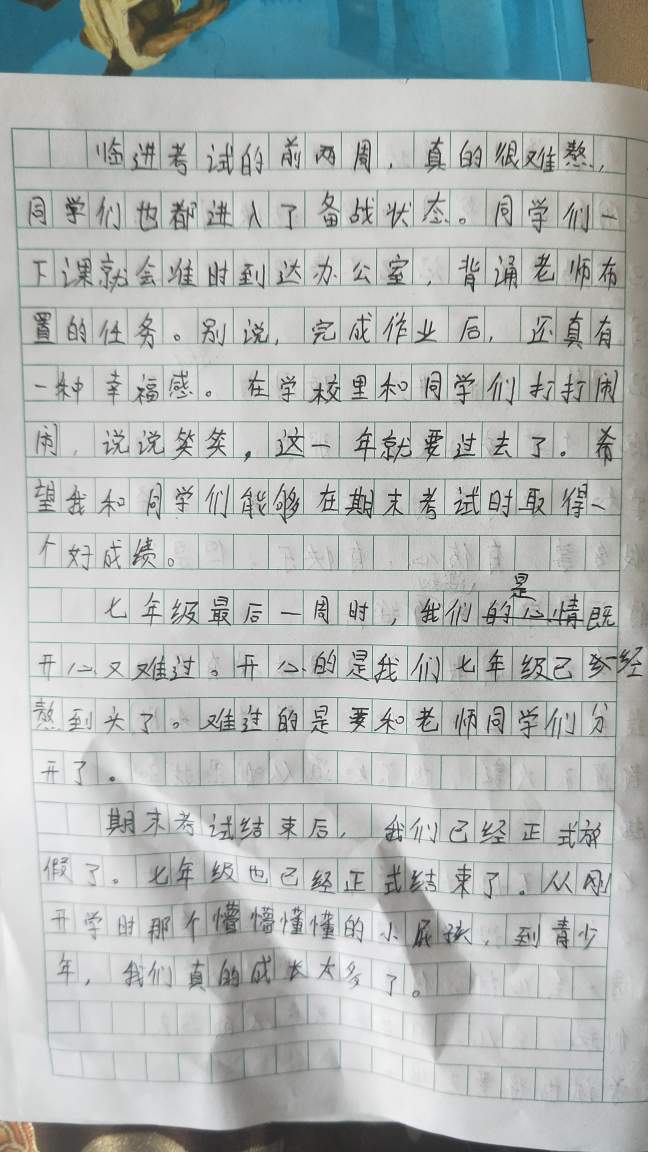 临进考试的前两周，真的很难熬，
同学们也都进入了备战状态。同学们一
下课就会准时到达办公室，背诵老师布
置的任务。别说，完成作业后，还真有
一种幸福感。在学校里和同学们打打闹
闹，说说笑笑，这一年就要过去了。希
望我和同学们能够在期末考试时取得一
个好成绩。
七年级最后一周时，我们是既
开心又难过。开心的是我们七年级已经
熬到头了。难过的是要和老师同学们分
开了。
期末考试结束后，我们已经正式放
假了。七年级也已经正式结束了。从刚
开学时那个懵懵懂懂的小屁孩，到青少
年，我们真的成长太多了。